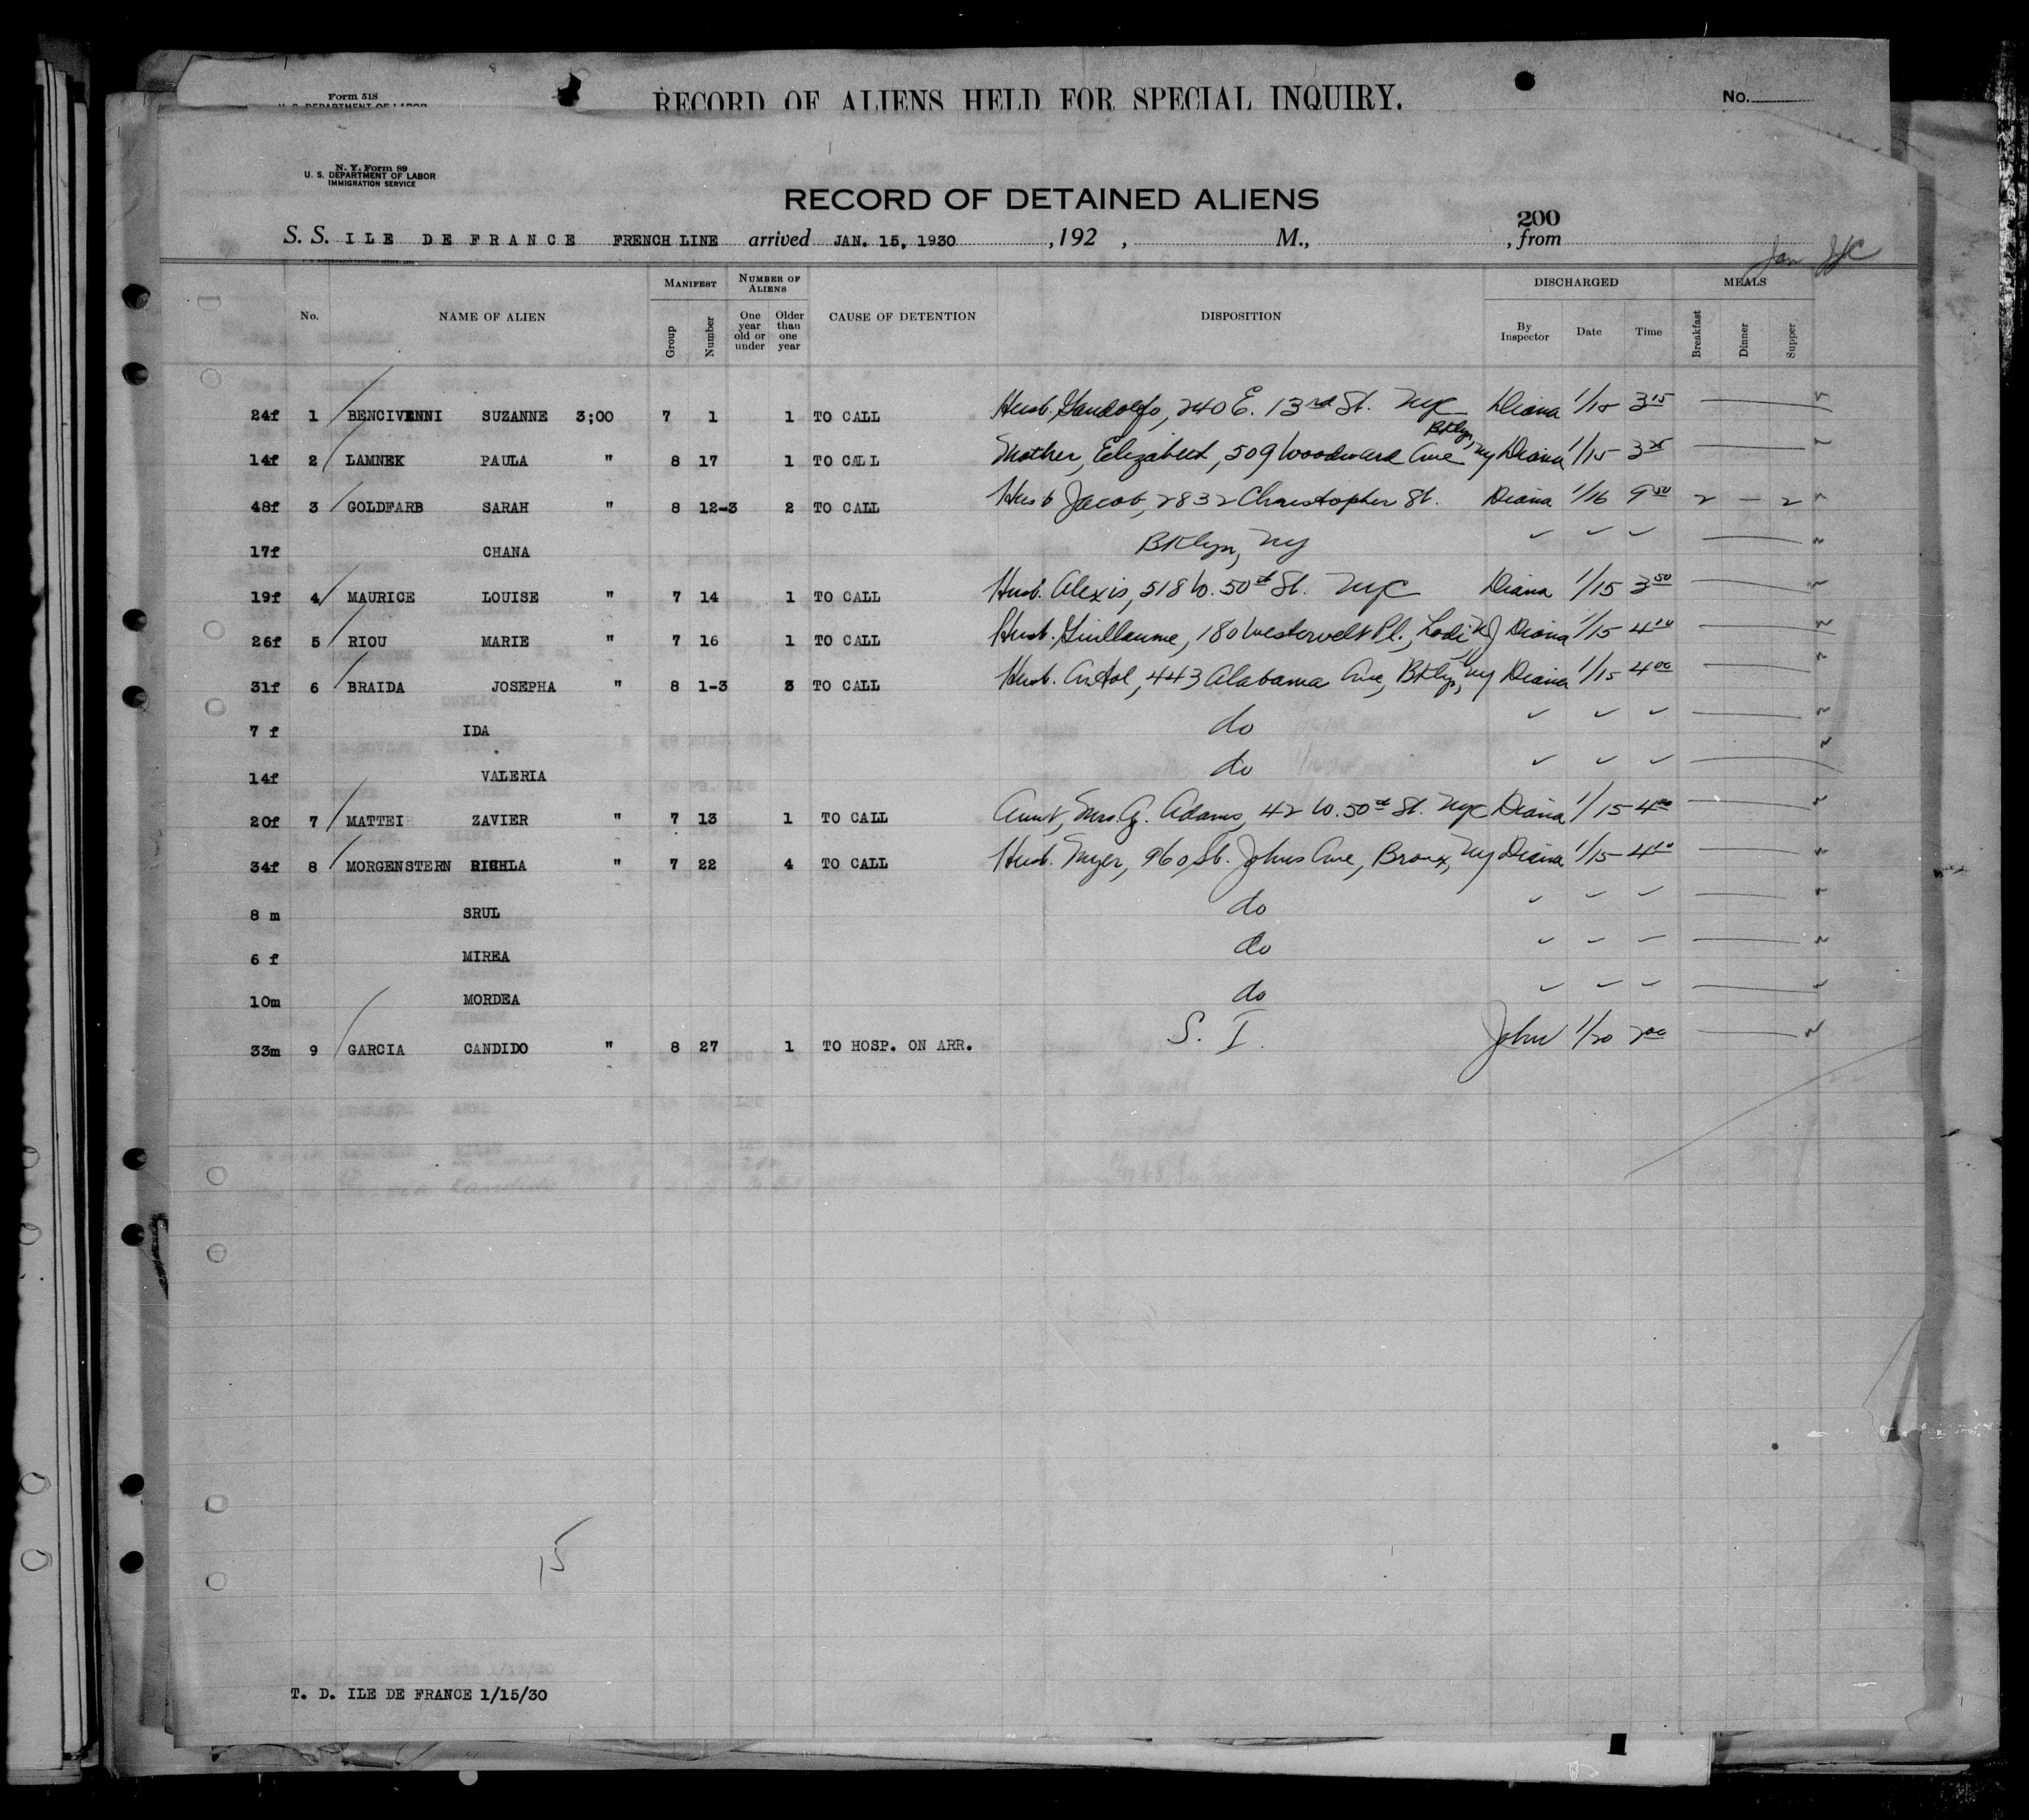 Form 518
RECORD OF ALIENS HELD FOR SPECIAL INQUIRY.
No.
N. Y. Form 89
U. S. DEPARTMENT OF LABOR
IMMIGRATION SERVICE
RECORD OF DETAINED ALIENS
200
S. S. ILE DE FRANCE FRENCH LINE arrived JAN. 15, 1930, 192 , M., , from
Jan
No. NAME OF ALIEN MANIFEST Group Number NUMBER OF ALIENS One year old or under Older than one year CAUSE OF DETENTION DISPOSITION DISCHARGED By Inspector Date Time MEALS Breakfast Dinner Supper
24f 1 BENCIVENNI SUZANNE 3;00 7 1 1 TO CALL Husb. Gandolfo, 240 E. 13rd St. NYC Diana 1/15 3 15
14f 2 LAMNEK PAULA " 8 17 1 TO CALL Mother, Elizabeth, 509 Woodward Ave Bklyn, NY Diana 1/15 3 25
48f 3 GOLDFARB SARAH " 8 12-3 2 TO CALL Husb Jacob, 2832 Christopher St. Diana 1/16 9 50 2 — 2
17f CHANA Bklyn, NY
19f 4 MAURICE LOUISE " 7 14 1 TO CALL Husb. Alexis, 518 W. 50th St. NYC Diana 1/15 3 50
26f 5 RIOU MARIE " 7 16 1 TO CALL Husb. Guillaume, 180 Westervelt Pl., Lodi, NJ Diana 1/15 4 10
31f 6 BRAIDA JOSEPHA " 8 1-3 3 TO CALL Husb. Antol, 443 Alabama Ave, Bklyn, NY Diana 1/15 4 00
7 f IDA do
14f VALERIA do
20f 7 MATTEI ZAVIER " 7 13 1 TO CALL Aunt, Mrs. G. Adams, 42 W. 50th St. NYC Diana 1/15 4 00
34f 8 MORGENSTERN RICHLA " 7 22 4 TO CALL Husb. Myer, 960 St. Johns Ave, Bronx, NY Diana 1/15 4 10
8 m SRUL do
6 f MIREA do
10m MORDEA do
33m 9 GARCIA CANDIDO " 8 27 1 TO HOSP. ON ARR. S. I. John 1/20 2 00
15
T. D. ILE DE FRANCE 1/15/30